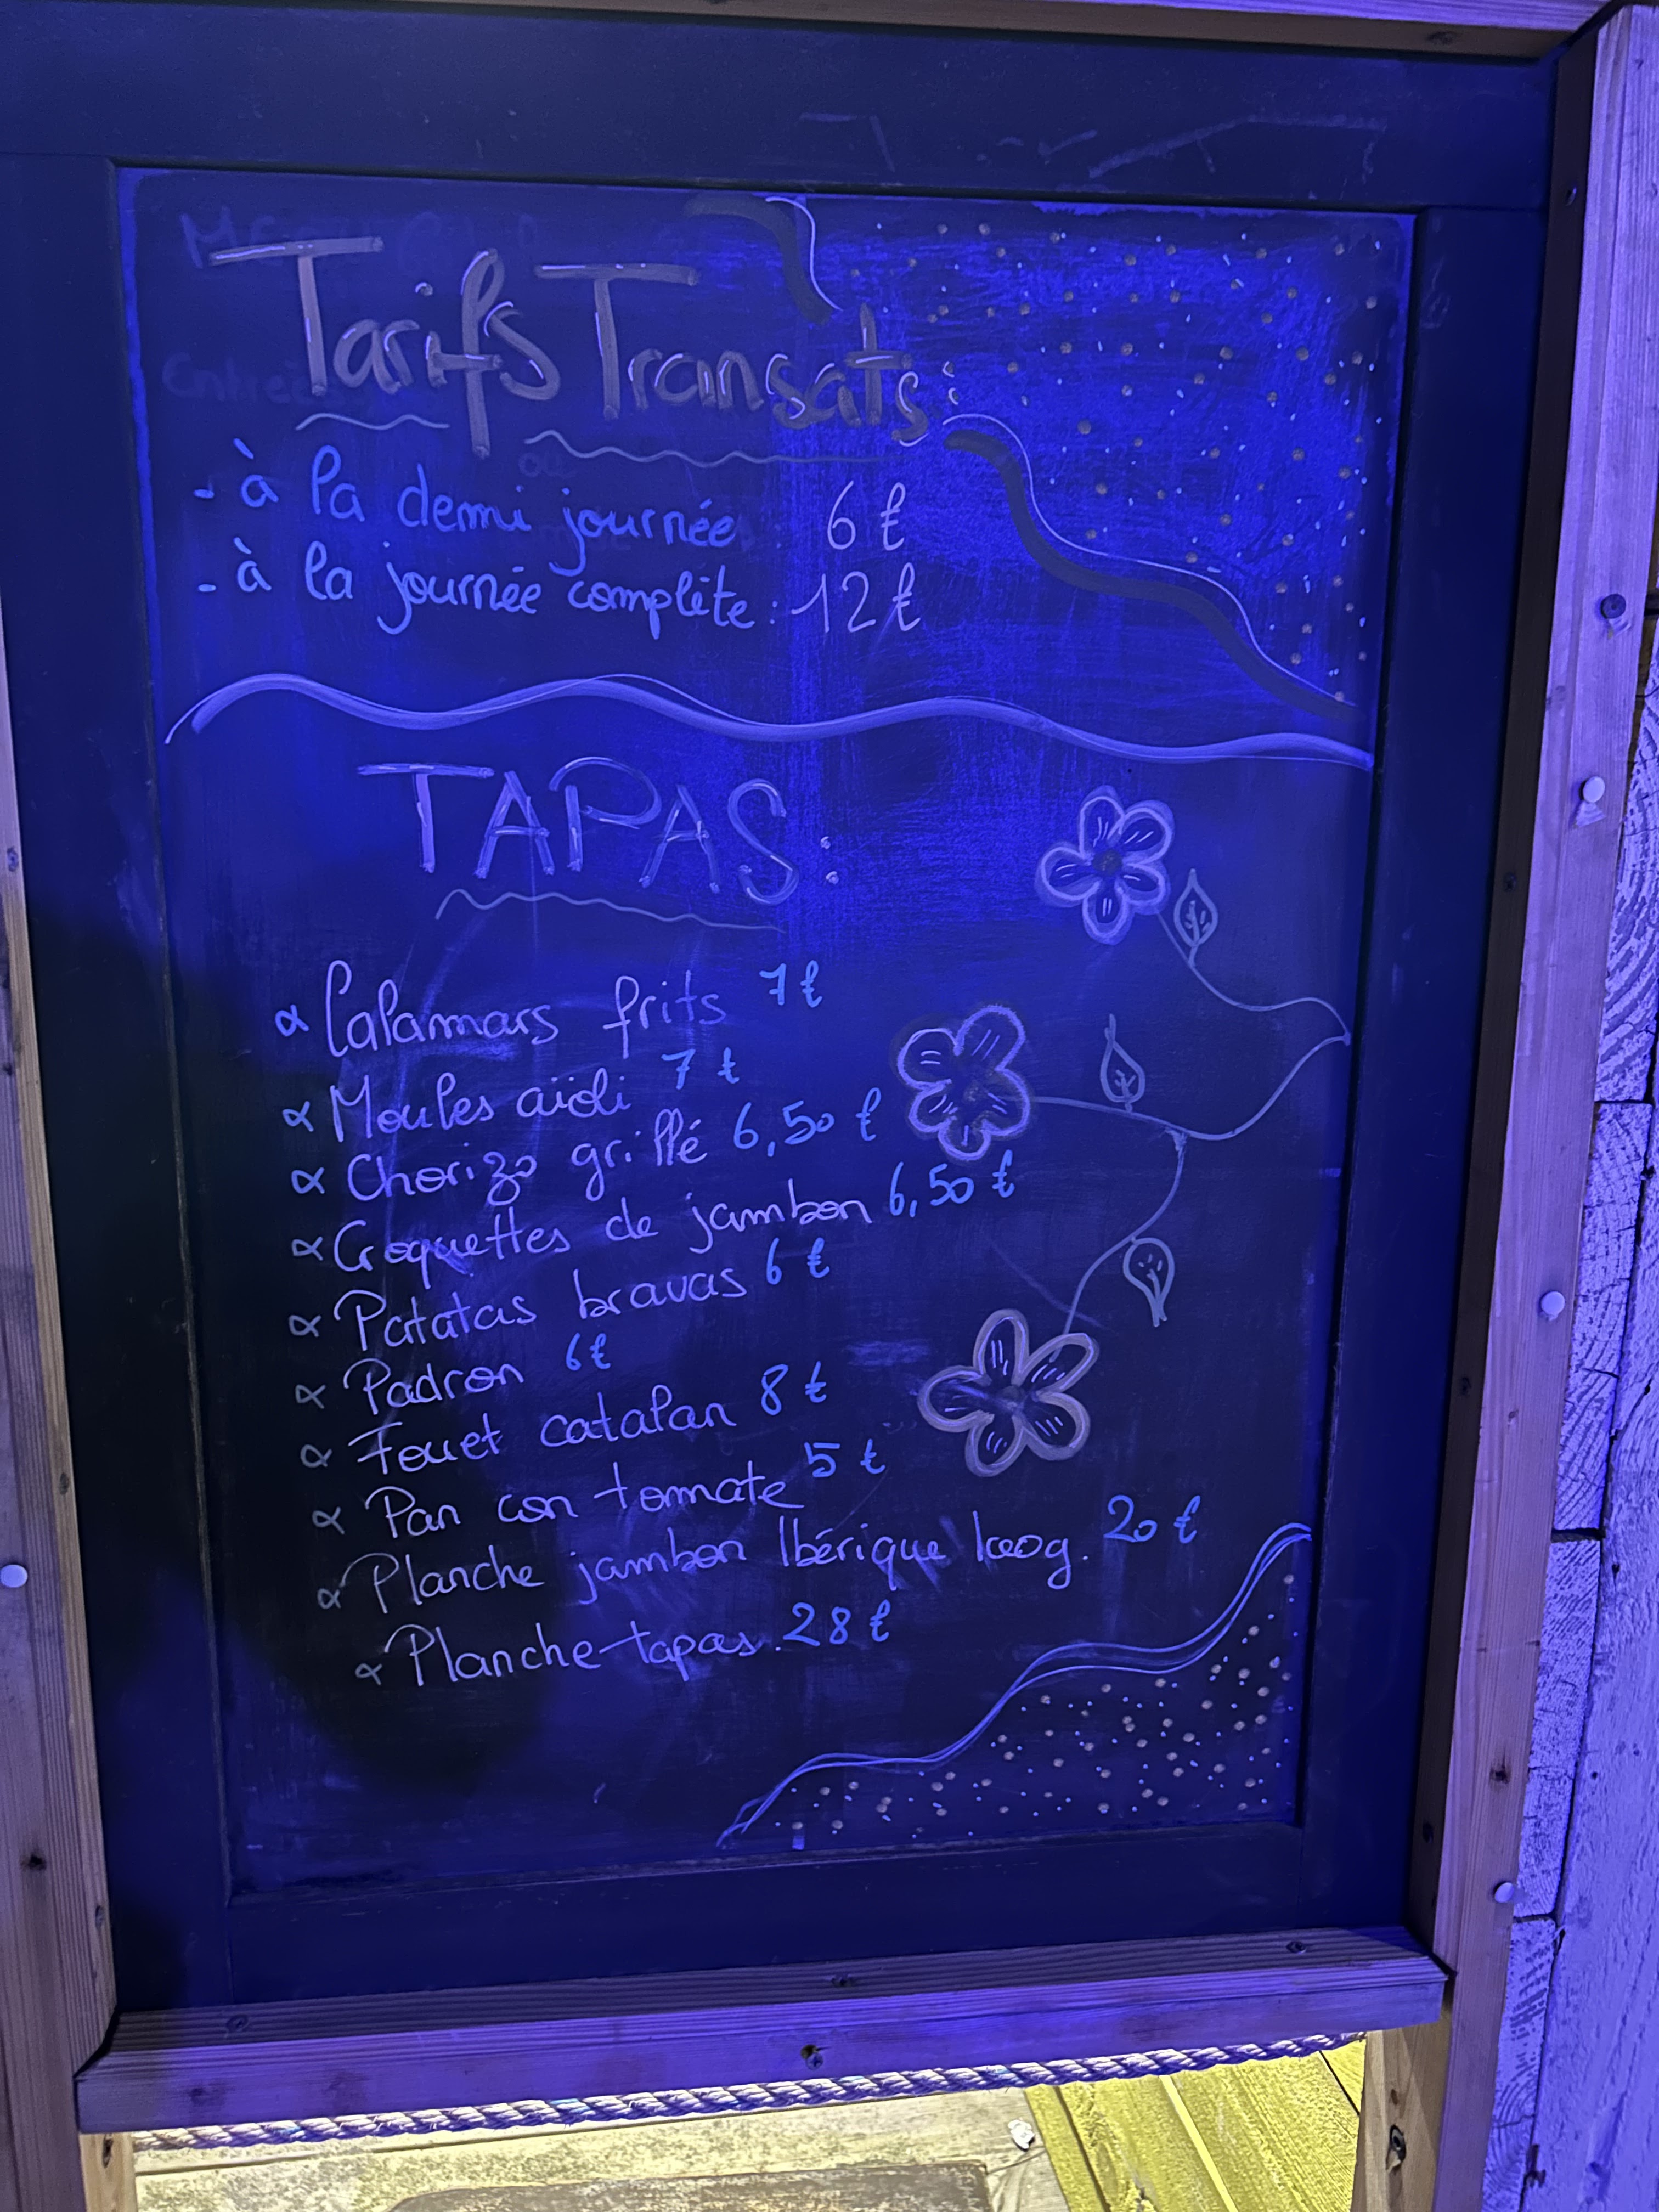 Tarifs Transats:
- à la demi journée : 6 €
- à la journée complète : 12 €
TAPAS:
Calamars frits 7 €
Moules aïoli 7 €
Chorizo grillé 6,50 €
Croquettes de jambon 6,50 €
Patatas bravas 6 €
Padron 6 €
Fouet catalan 8 €
Pan con tomate 5 €
Planche jambon Ibérique 100g. 20 €
Planche tapas. 28 €